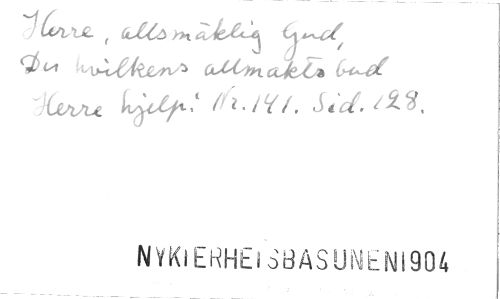 Herre, allsmäktig Gud,
Du hvilkens allmakts bud
Herre hjelp! Nr. 141. Sid. 128.
NYKTERHETSBASUNEN 1904